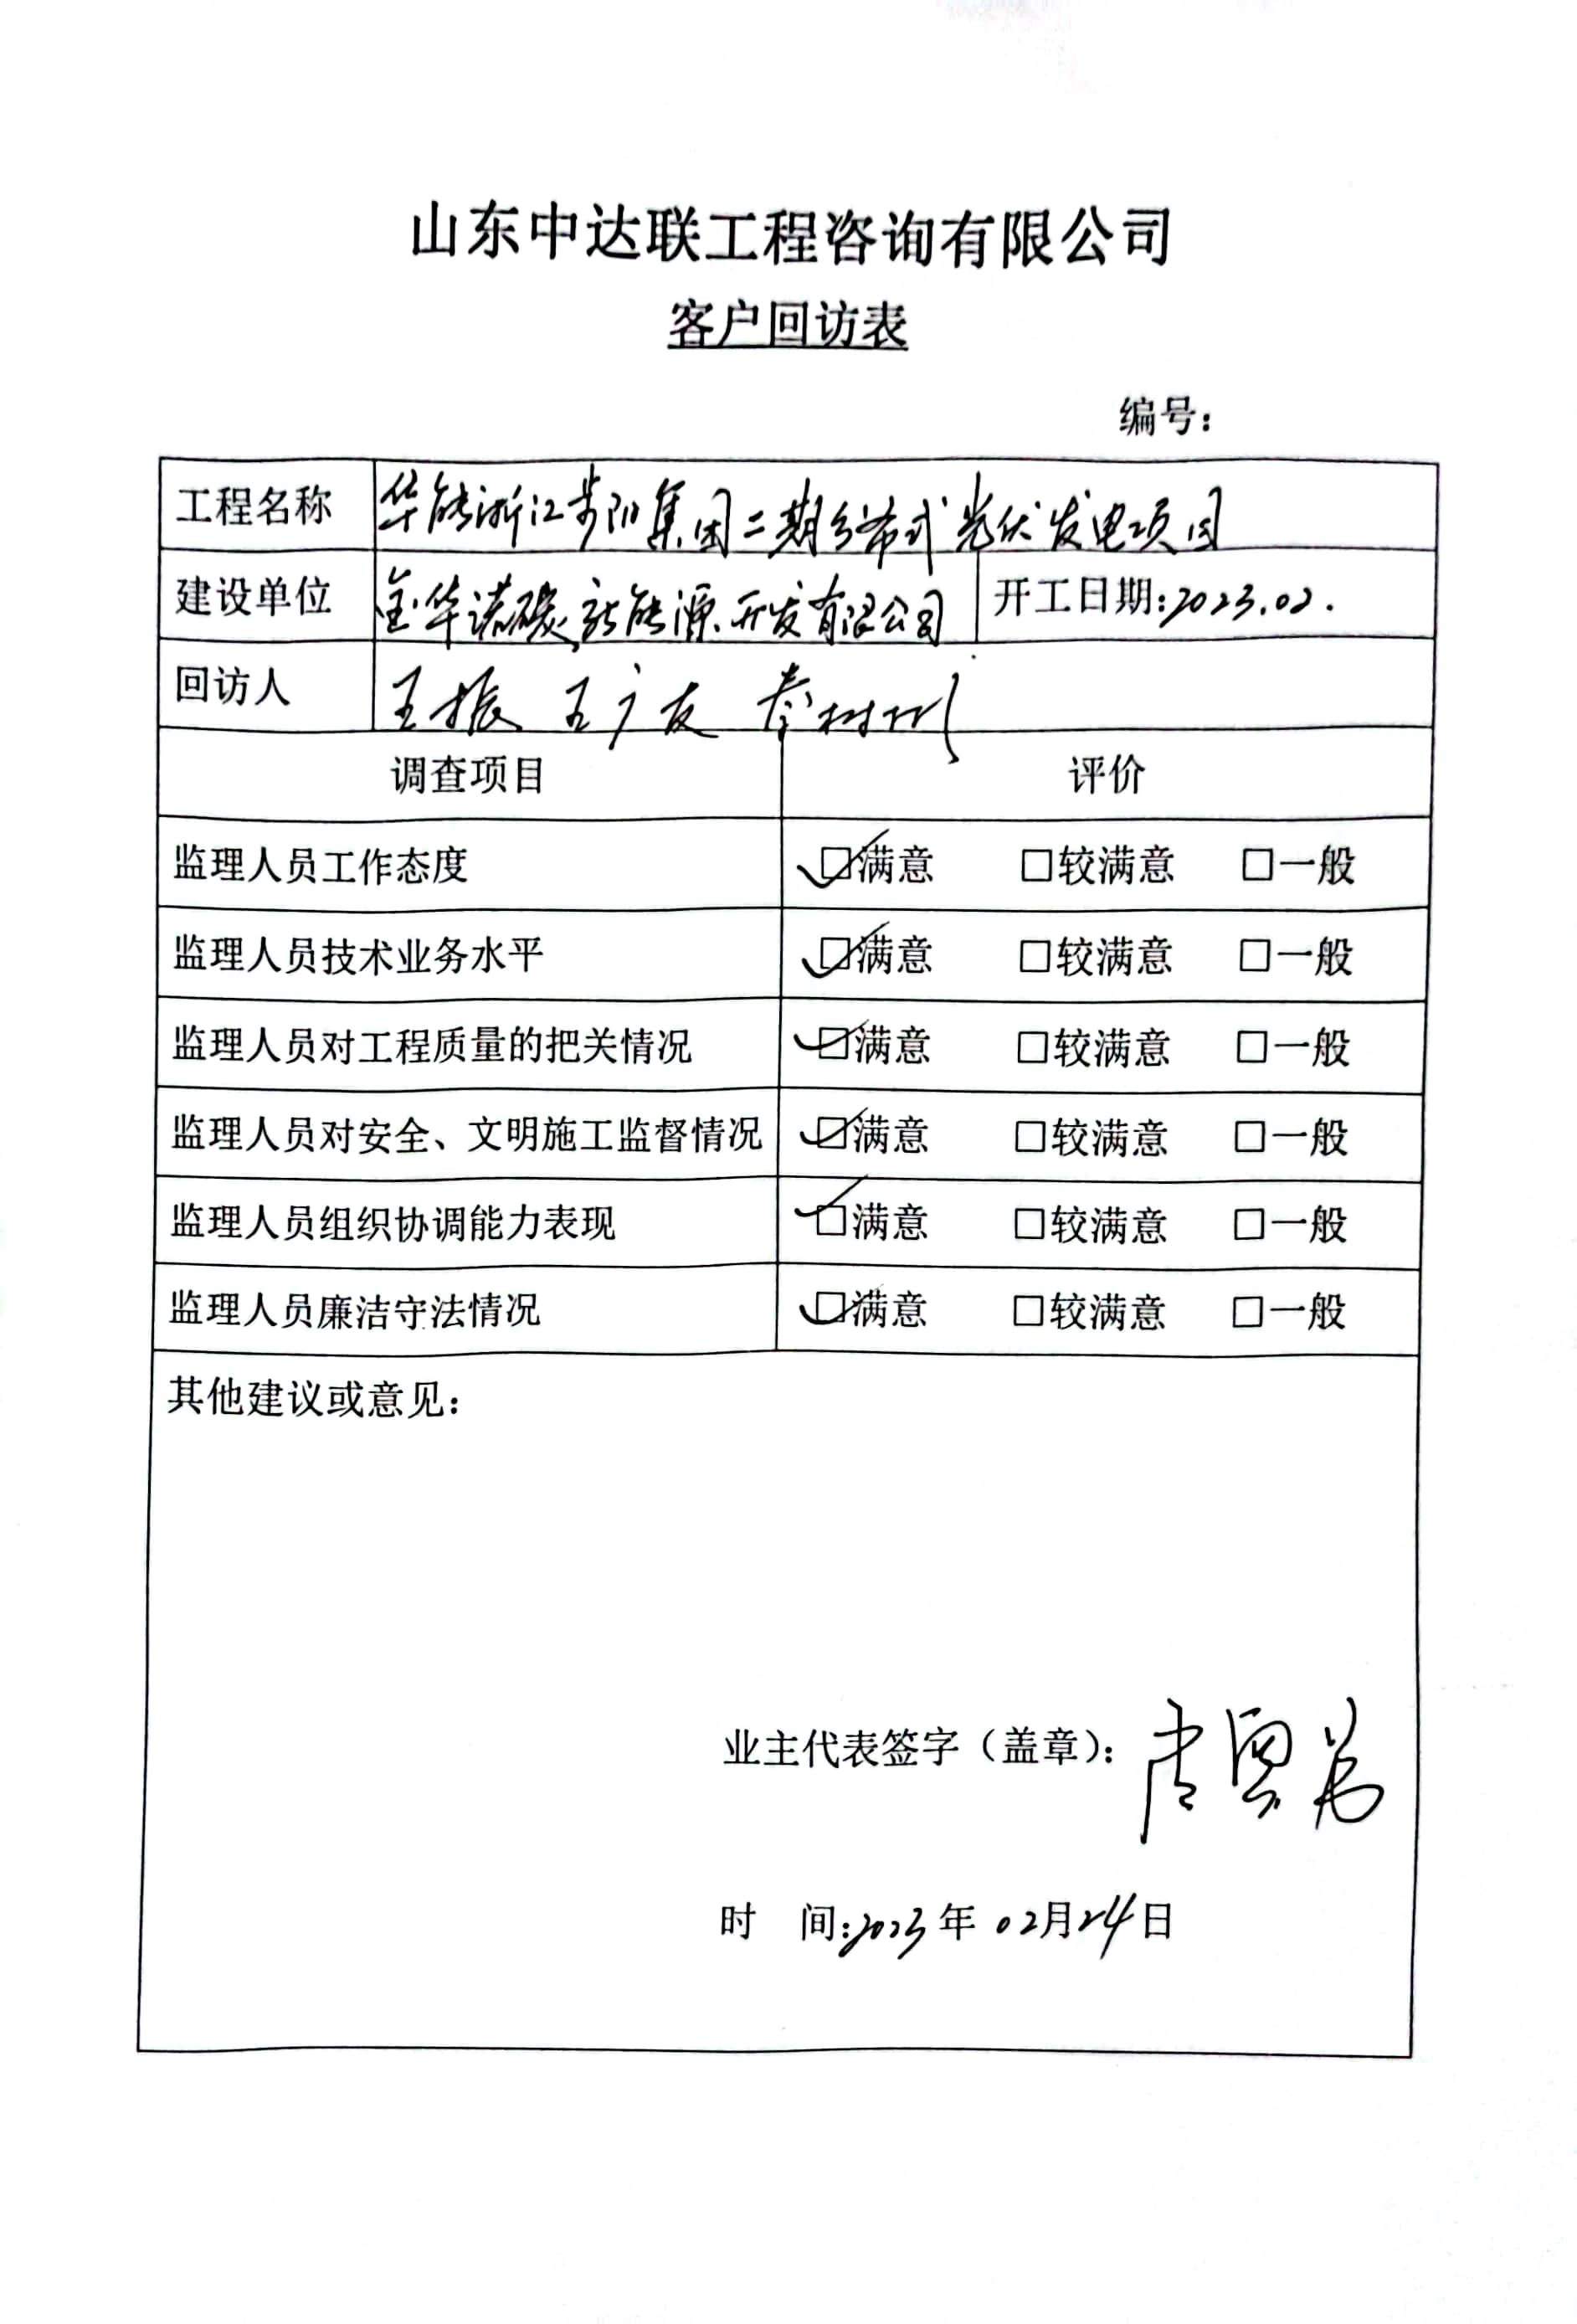 山东中达联工程咨询有限公司
客户回访表
编号：
工程名称 华能浙江步阳集团二期分布式光伏发电项目
建设单位 金华诺碳新能源开发有限公司 开工日期：2023.02.
回访人 王振 王广友 秦树
调查项目 评价
监理人员工作态度 ☑满意 □较满意 □一般
监理人员技术业务水平 ☑满意 □较满意 □一般
监理人员对工程质量的把关情况 ☑满意 □较满意 □一般
监理人员对安全、文明施工监督情况 ☑满意 □较满意 □一般
监理人员组织协调能力表现 ☑满意 □较满意 □一般
监理人员廉洁守法情况 ☑满意 □较满意 □一般
其他建议或意见：
业主代表签字（盖章）：
时 间：2023年02月24日